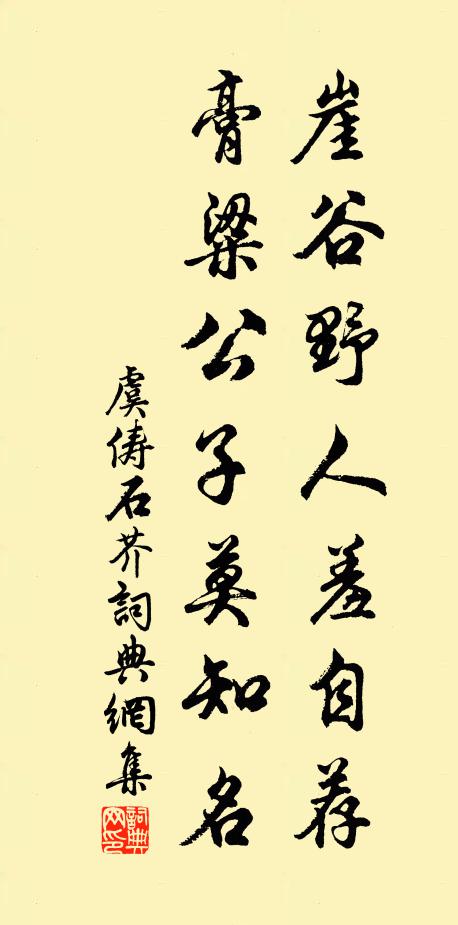 崖谷野人羞自荐
膏粱公子莫知名
虞俦石芥詞典網集
詞典网印